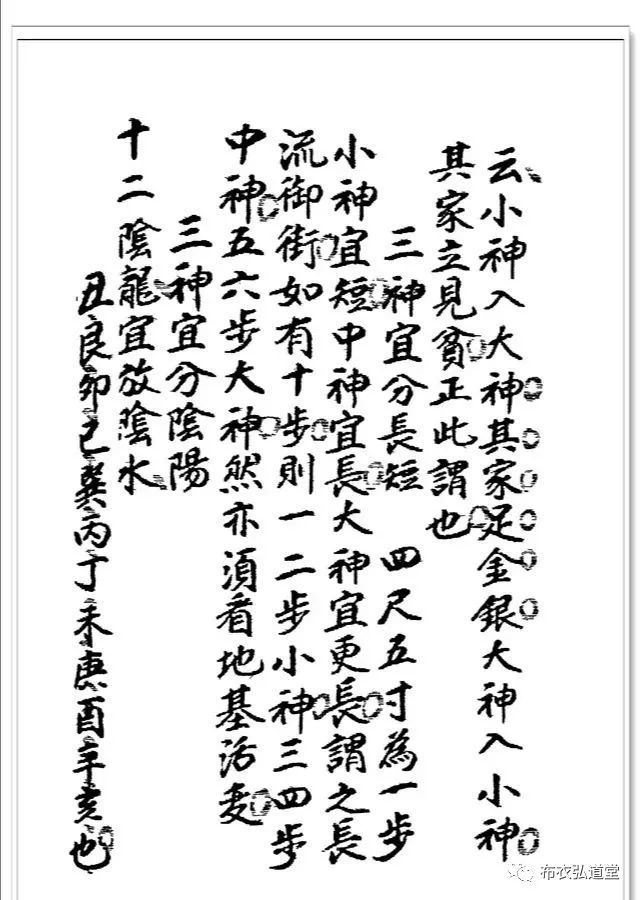 云小神入大神其家足金銀大神入小神
其家立見貧正此謂也
三神宜分長短 四尺五寸為一步
小神宜短中神宜長大神宜更長謂之長
流御街如有十步則一二步小神三四步
中神五六步大神然亦須看地基活変
三神宜分陰陽
十二陰龍宜放陰水
丑艮卯巳巽丙丁未庚酉辛亥也
布衣弘道堂